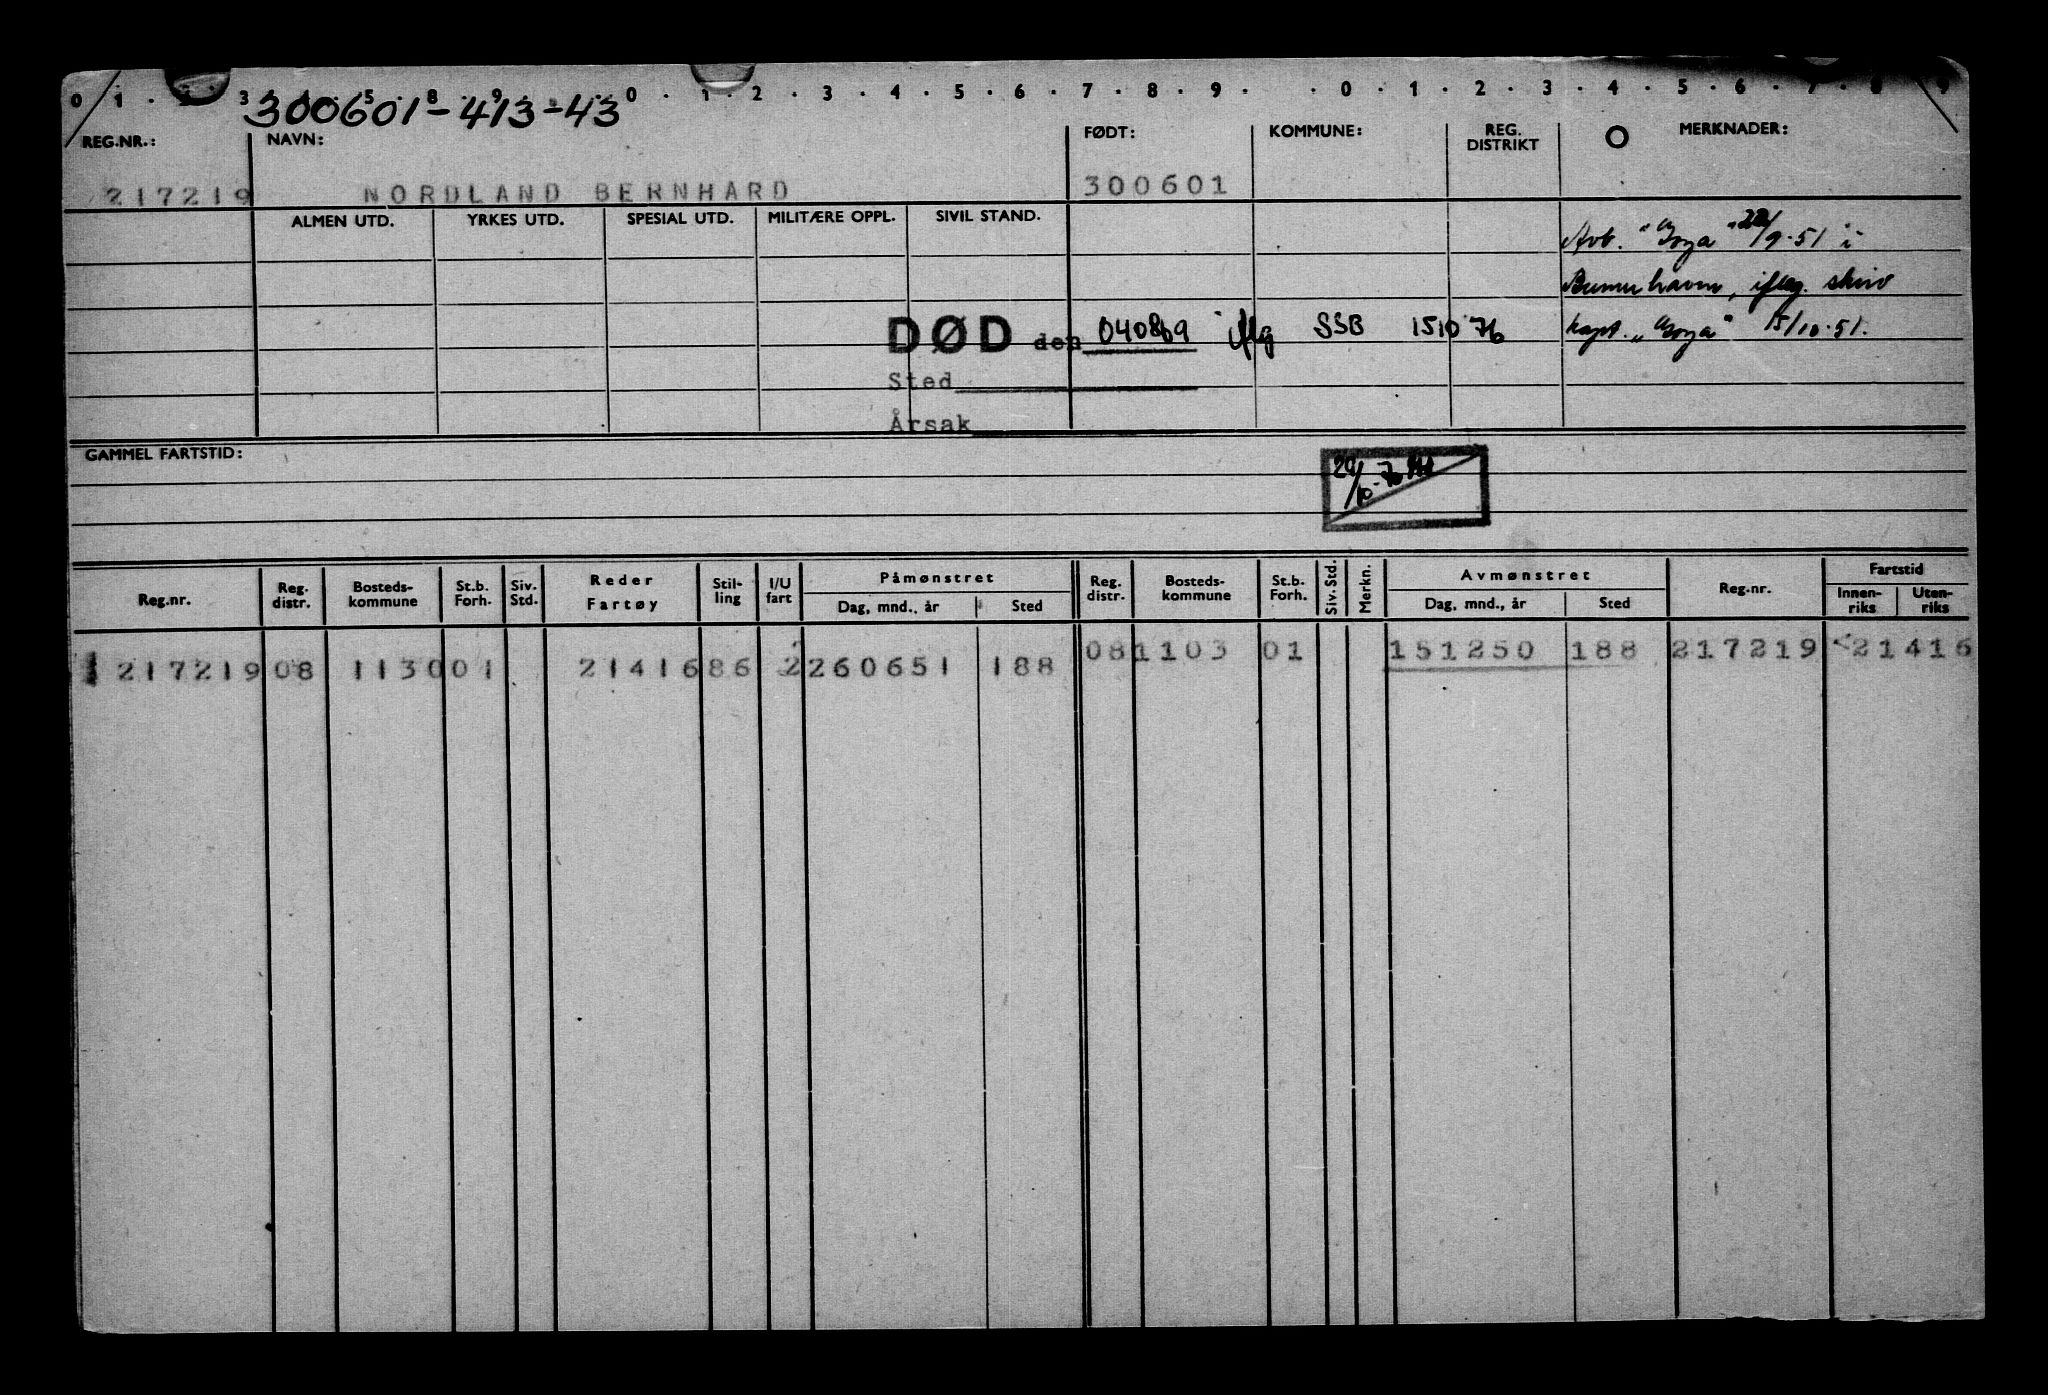 0 1 . 2 . 3 . 4 . 5 . 8 . 9 . 0 . 1 . 2 . 3 . 4 . 5 . 6 . 7 . 8 . 9 . . 0 . 1 . 2 . 3 . 4 . 5 . 6 . 7 . 8 . 9
300601-413-43
REG.NR.: NAVN: FØDT: KOMMUNE: REG. DISTRIKT MERKNADER:
217219 NORDLAND BERNHARD 300601
ALMEN UTD. YRKES UTD. SPESIAL UTD. MILITÆRE OPPL. SIVIL STAND.
Avb. "Goya" 22/9-51 i
Bremerhaven, iflg. skriv
kapt. "Goya" 15/10-51.
DØD den 040869 iflg SSB 151076
Sted
Årsak
GAMMEL FARTSTID:
29/10-76
Reg.nr. Reg. distr. Bosteds-kommune St.b. Forh. Siv. Std. Reder Fartøy Stil-ling I/U fart Påmønstret Dag, mnd., år Sted Reg. distr. Bosteds-kommune St.b. Forh. Siv. Std. Merkn. Avmønstret Dag, mnd., år Sted Reg.nr. Fartstid Innen-riks Uten-riks
081103 01 151250 188 217219 21416
217219 08 1130 01 21416 86 2 260651 188